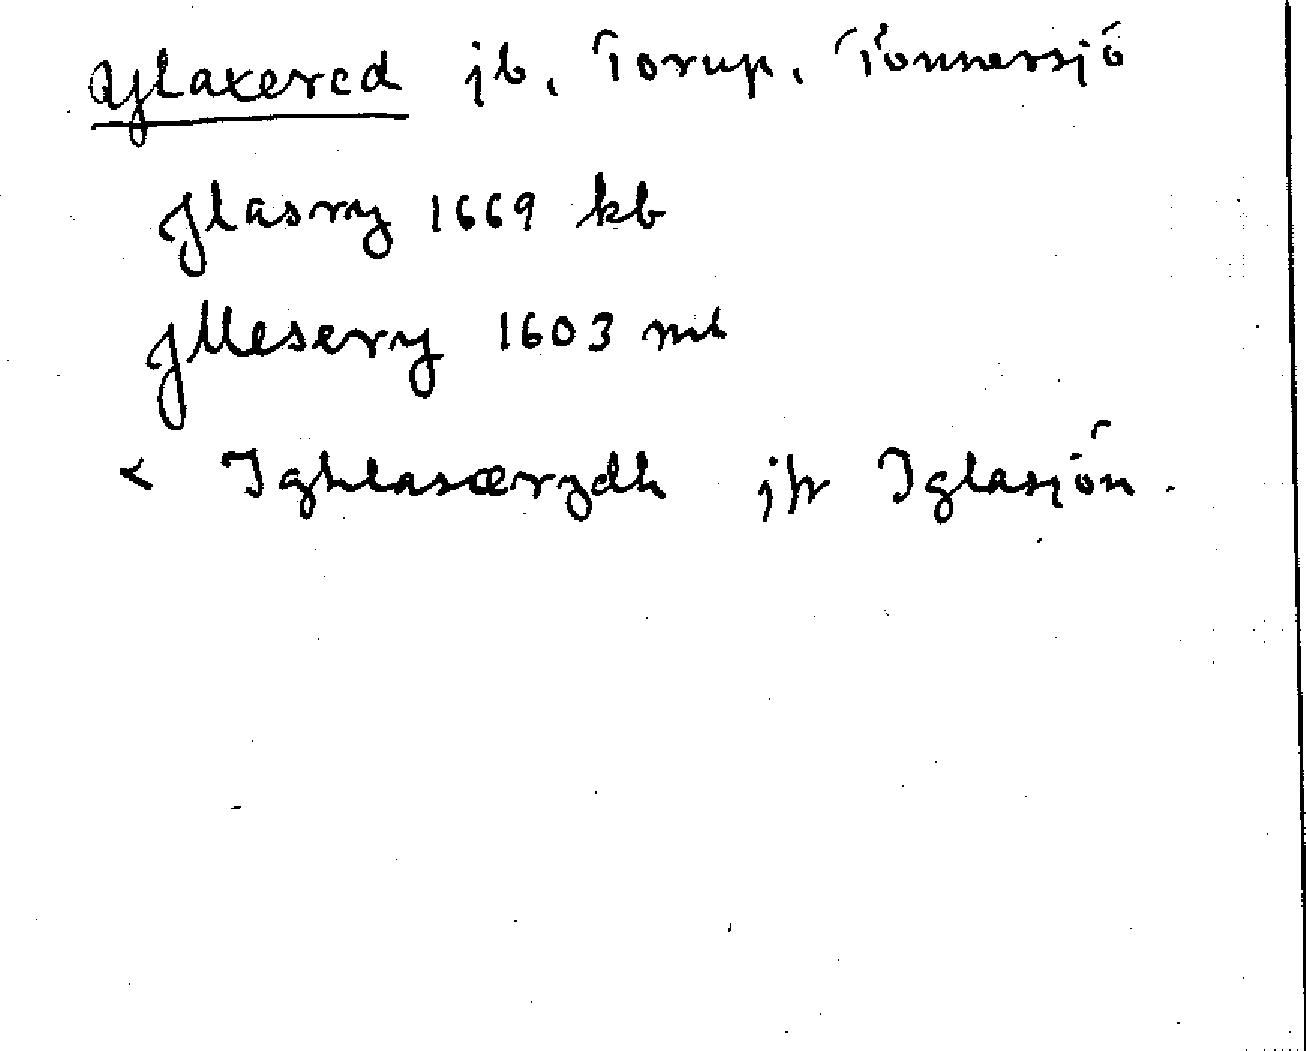 Ylaxered jb, Torup, Tönnersjö
Jlasry 1669 kb
Jllesery 1603 ml
< Ighlasærydh jfr Iglasjön.